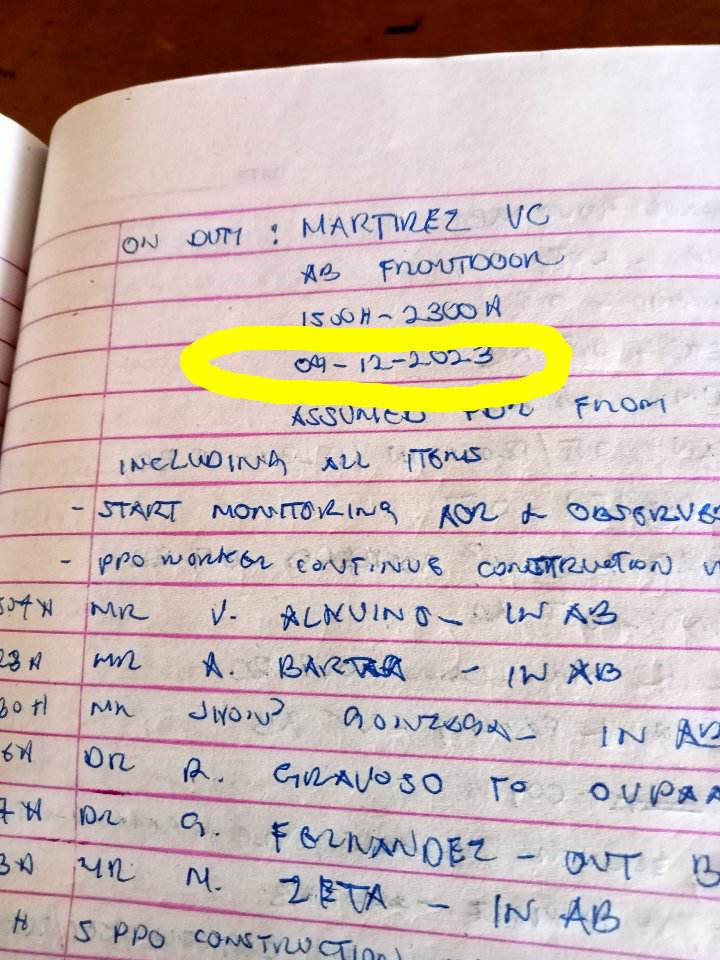 ON DUTY : MARTIREZ VC
AB FRONTDOOR
1500H - 2300H
09-12-2023
ASSUMED FROM
INCLUDING ALL ITEMS
- START MONITORING AOR & OBSERVE
- PPO WORKER CONTINUE CONSTRUCTION
MR V. ALKUINO - IN AB
MR A. - IN AB
MR GONZAGA - IN AB
DR R. GRAVOSO TO OVPAA
DR G. FERNANDEZ - OUT
MR M. ZETA - IN AB
H 5 PPO CONSTRUCTION